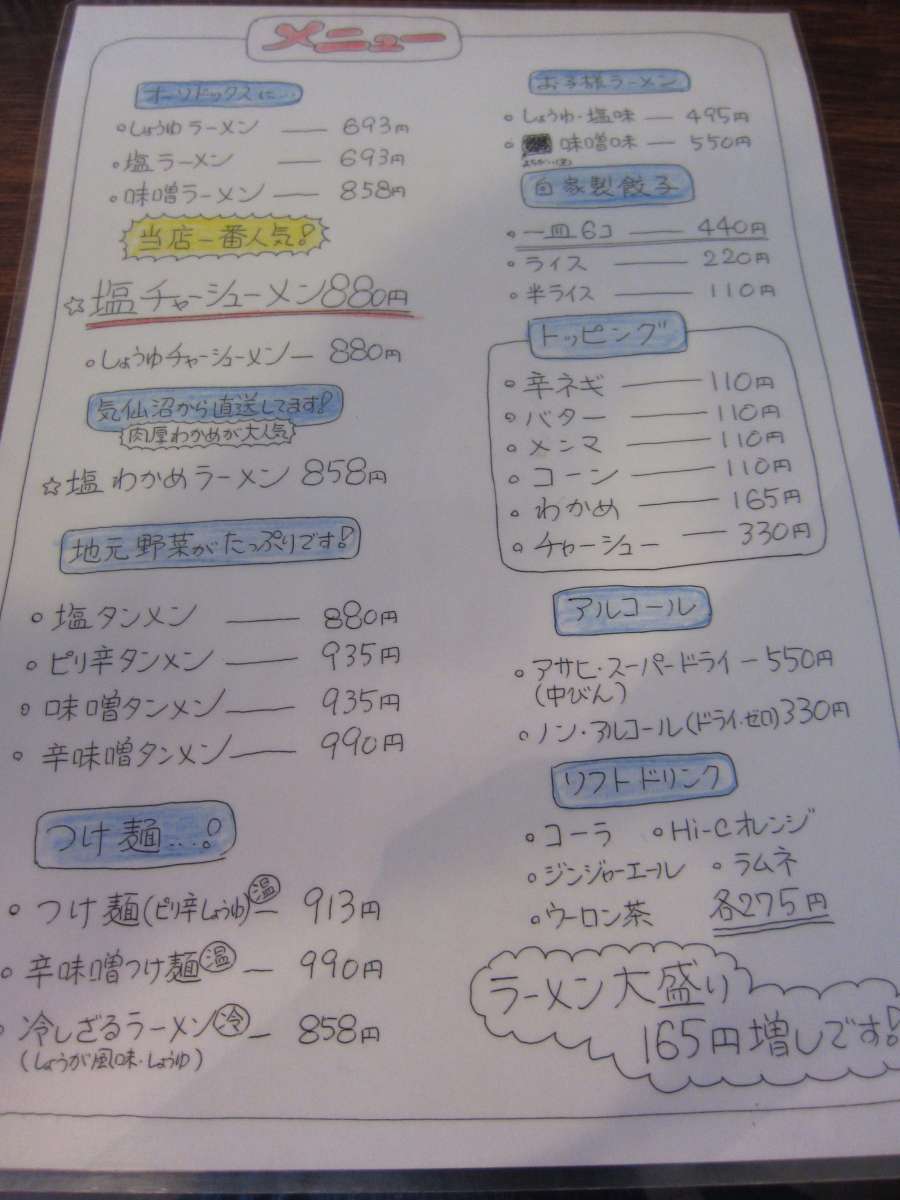 メニュー
オーソドックスに…
しょうゆラーメン — 693円
塩ラーメン — 693円
味噌ラーメン — 858円
当店一番人気!
☆塩チャーシューメン880円
しょうゆチャーシューメン — 880円
気仙沼から直送してます!
肉厚わかめが大人気
☆塩わかめラーメン 858円
地元野菜がたっぷりです!
塩タンメン — 880円
ピリ辛タンメン — 935円
味噌タンメン — 935円
辛味噌タンメン — 990円
つけ麺…!
つけ麺(ピリ辛しょうゆ)温 — 913円
辛味噌つけ麺温 — 990円
冷しざるラーメン冷 — 858円
(しょうが風味・しょうゆ)
お子様ラーメン
しょうゆ・塩味 — 495円
味噌味 — 550円
自家製餃子
一皿6コ — 440円
ライス — 220円
半ライス — 110円
トッピング
辛ネギ — 110円
バター — 110円
メンマ — 110円
コーン — 110円
わかめ — 165円
チャーシュー — 330円
アルコール
アサヒ・スーパードライ — 550円
(中びん)
ノン・アルコール(ドライ・ゼロ)330円
ソフトドリンク
コーラ Hi-Cオレンジ
ジンジャーエール ラムネ
ウーロン茶 各275円
ラーメン大盛り
165円増しです!